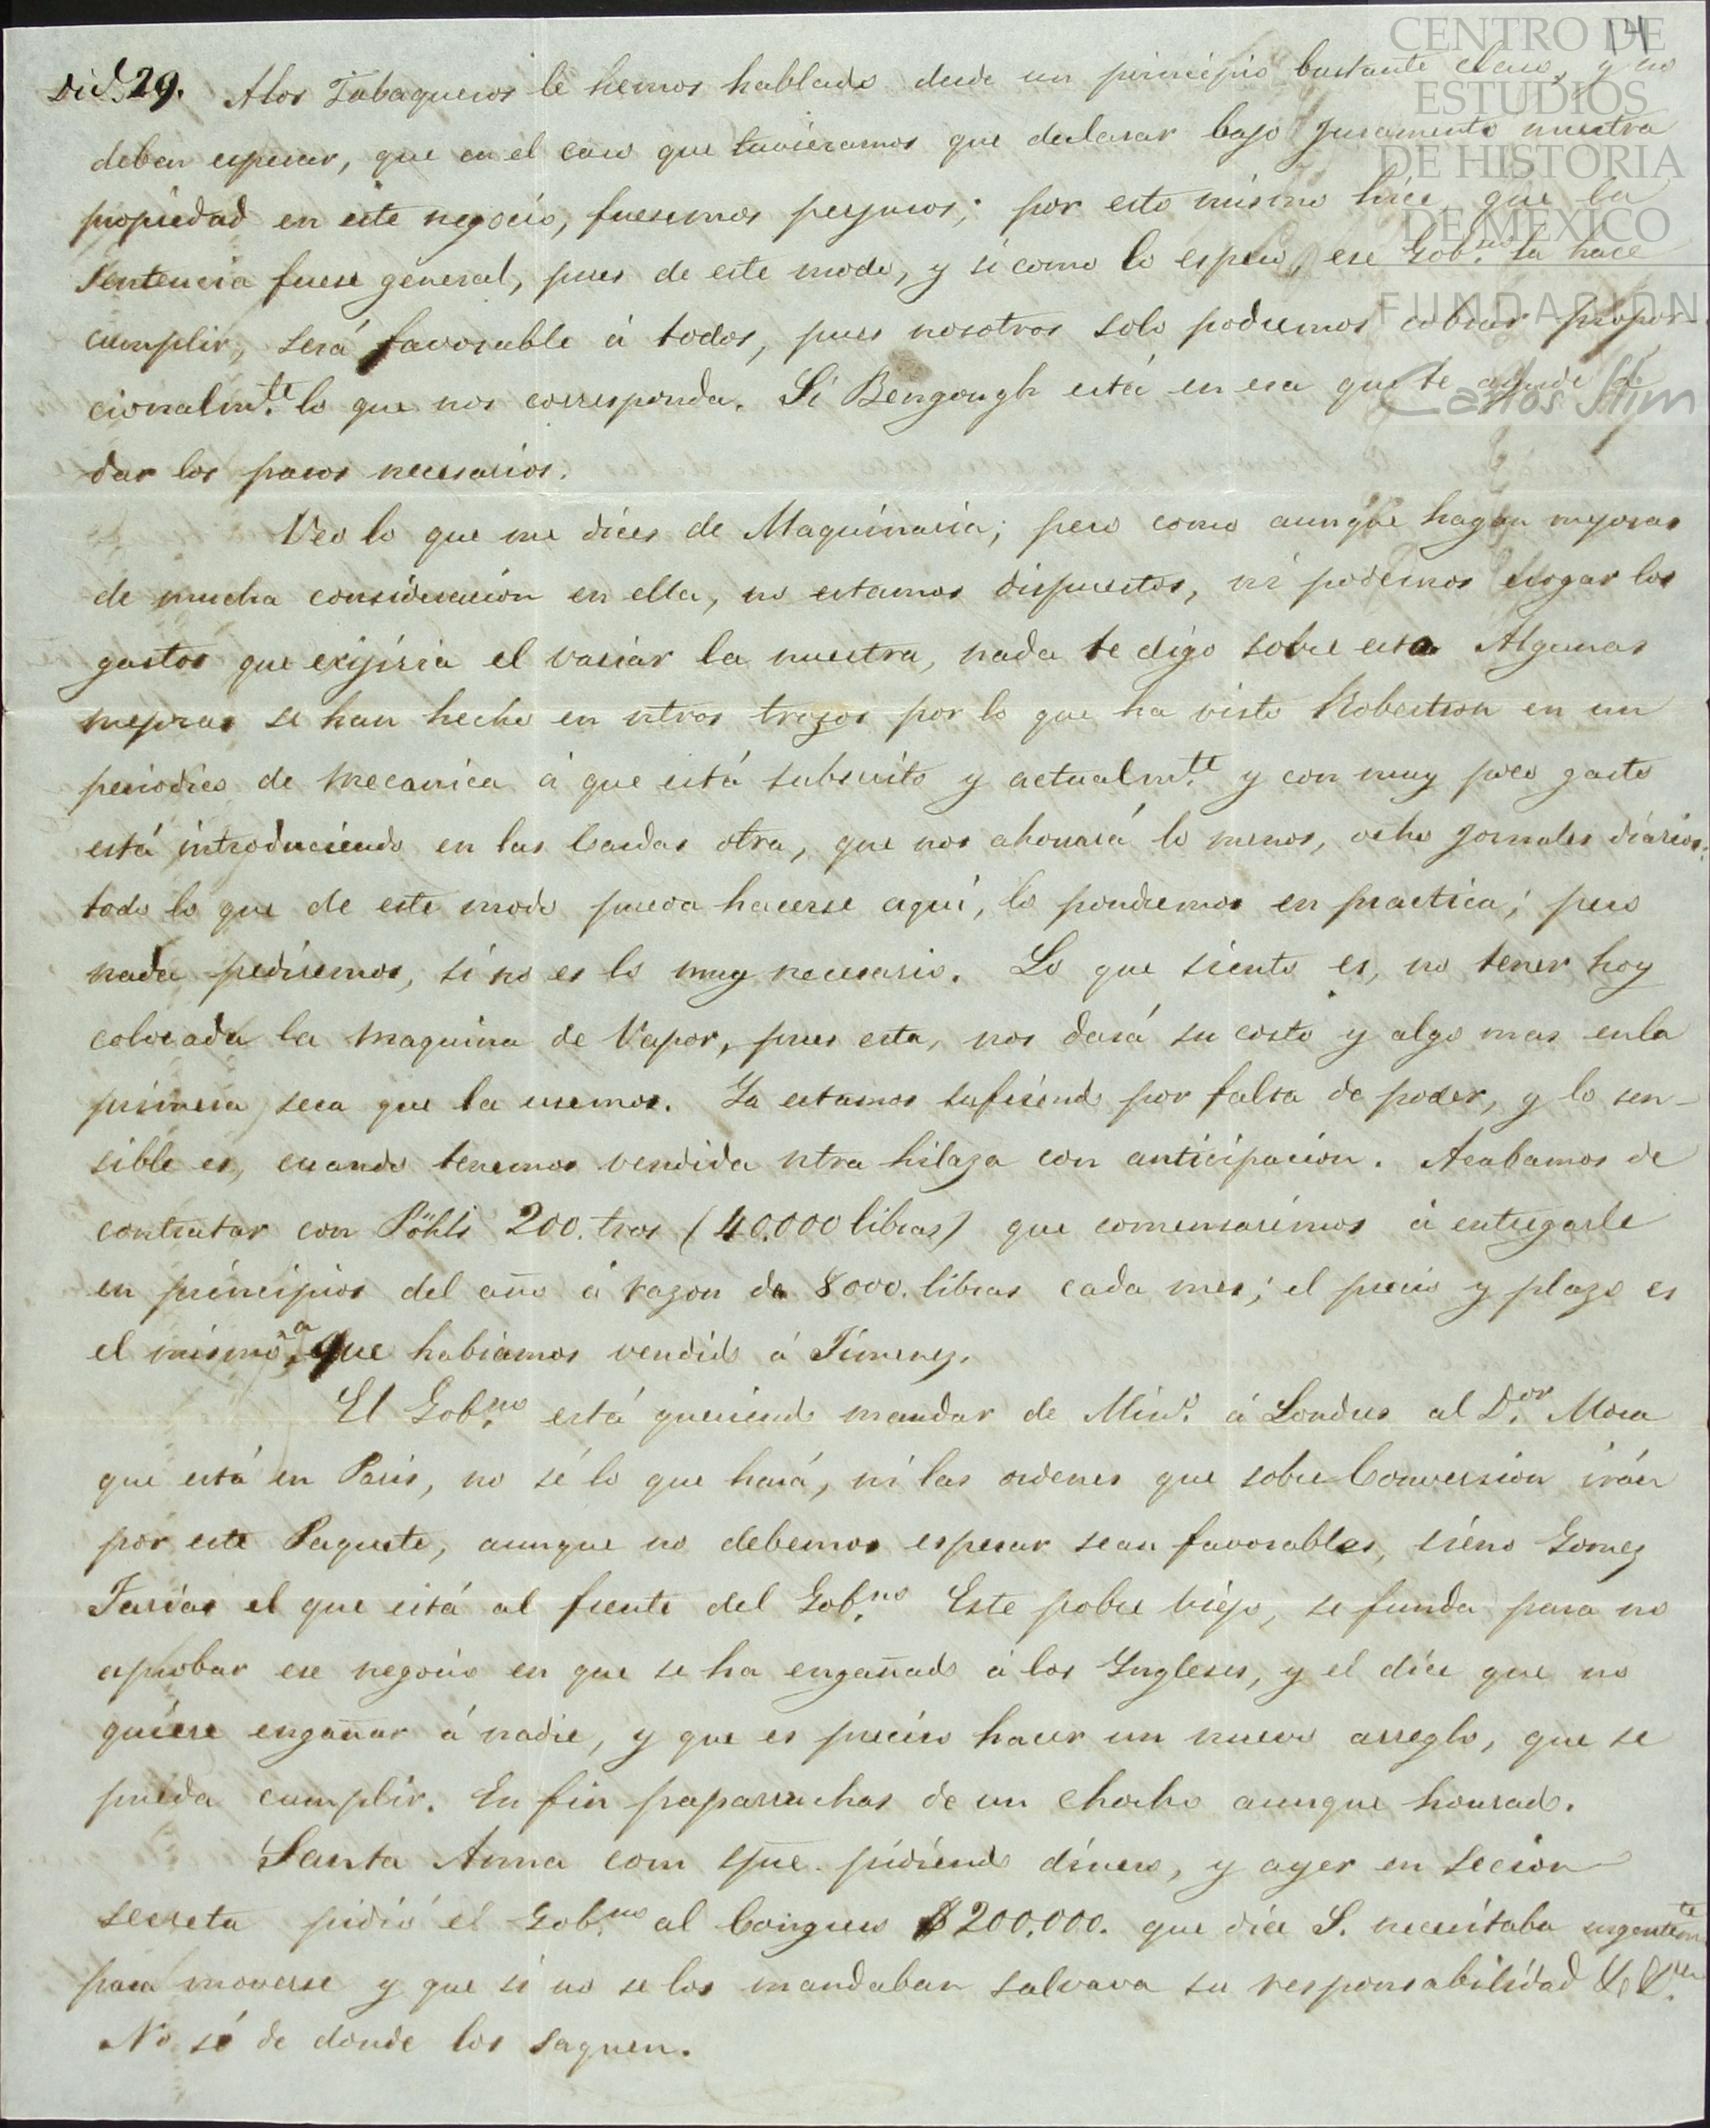 14
CENTRO DE
ESTUDIOS
DE HISTORIA
DE MÉXICO
FUNDACIÓN
Carlos Slim
Dic.e 29. A los Tabaqueros le hemos hablado desde un principio bastante claro, y no
deben esperar, que en el caso que tuvieramos que declarar bajo juramento nuestra
propiedad en este negocio, fuesemos perjuros; por esto mismo hice que la
Sentencia fuese general, pues de este modo, y si como lo espero, ese Gob.no la hace
cumplir, será favorable á todos, pues nosotros solo podremos cobrar propor-
cionalm.te lo que nos corresponda. Si Bengough está en esa que te ayude á
dar los pasos necesarios.
Veo lo que me dices de Maquinaria; pero como aunque hagan mejoras
de mucha consideración en ella, no estamos dispuestos, ni podemos erogar los
gastos que exijiria el variar la nuestra, nada te digo sobre esto. Algunas
mejoras se han hecho en ntros trozos por lo que ha visto Robertson en un
periodico de mecanica á que está subscrito y actualm.te y con muy poco gasto
está introduciendo en las Cardas otra, que nos ahorrará lo menos, ocho jornales diarios:
todo lo que de este modo pueda hacerse aquí, lo pondremos en practica; pero
nada pediremos, si no es lo muy necesario. Lo que siento es, no tener hoy
colocada la maquina de Vapor, pues esta, nos dará su costo y algo mas en la
primera seca que la usemos. Ya estamos sufriendo por falta de poder, y lo sen-
sible es, cuando tenemos vendida ntra hilaza con anticipacion. Acabamos de
contratar con Pöhls 200. tros (40.000 libras) que comensarémos á entregarle
en principios del año á razon de 8000. libras cada mes; el precio y plazo es
el mismo, a que habiamos vendido á Jimenez.
El Gob.no está queriendo mandar de Min.o á Londres al D.or Mora
que está en Paris, no sé lo que hará, ni las ordenes que sobre Conversion irán
por este Paquete, aunque no debemos esperar sean favorables, siendo Gomez
Farias el que está al frente del Gob.no Este pobre viejo, se funda para no
aprobar ese negocio en que se ha engañado á los Yngleses, y él dice que no
quiere engañar á nadie, y que es preciso hacer un nuevo arreglo, que se
pueda cumplir. En fin paparruchas de un chocho aunque honrado.
Santa Anna com spre. pidiendo dinero, y ayer en secion
secreta pidió el Gob.no al Congreso $200.000. que dice S. necesitaba urgentem.te
para moverse y que si no se los mandaban salvava su responsabilidad
No sé de donde los saquen.